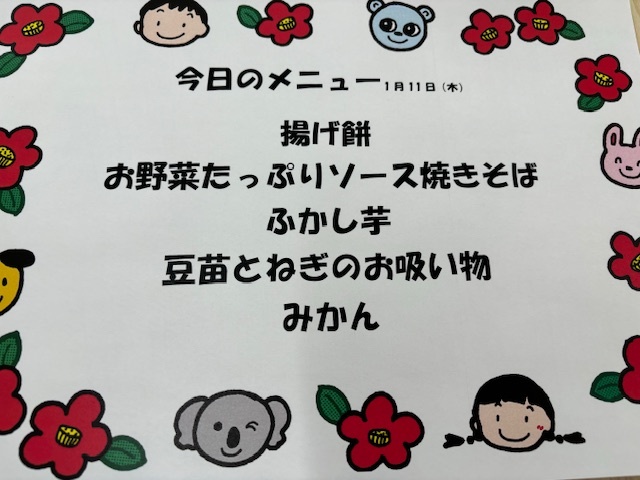 今日のメニュー1月11日(木)
揚げ餅
お野菜たっぷりソース焼きそば
ふかし芋
豆苗とねぎのお吸い物
みかん